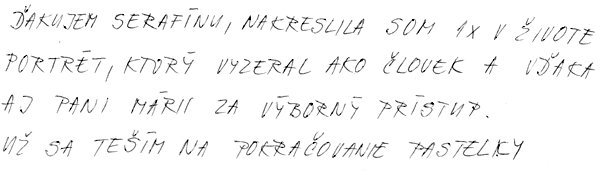 ĎAKUJEM SERAFÍNU, NAKRESLILA SOM 1X V ŽIVOTE
PORTRÉT, KTORÝ VYZERAL AKO ČLOVEK A VĎAKA
AJ PANI MÁRII ZA VÝBORNÝ PRÍSTUP.
UŽ SA TEŠÍM NA POKRAČOVANIE PASTELKY